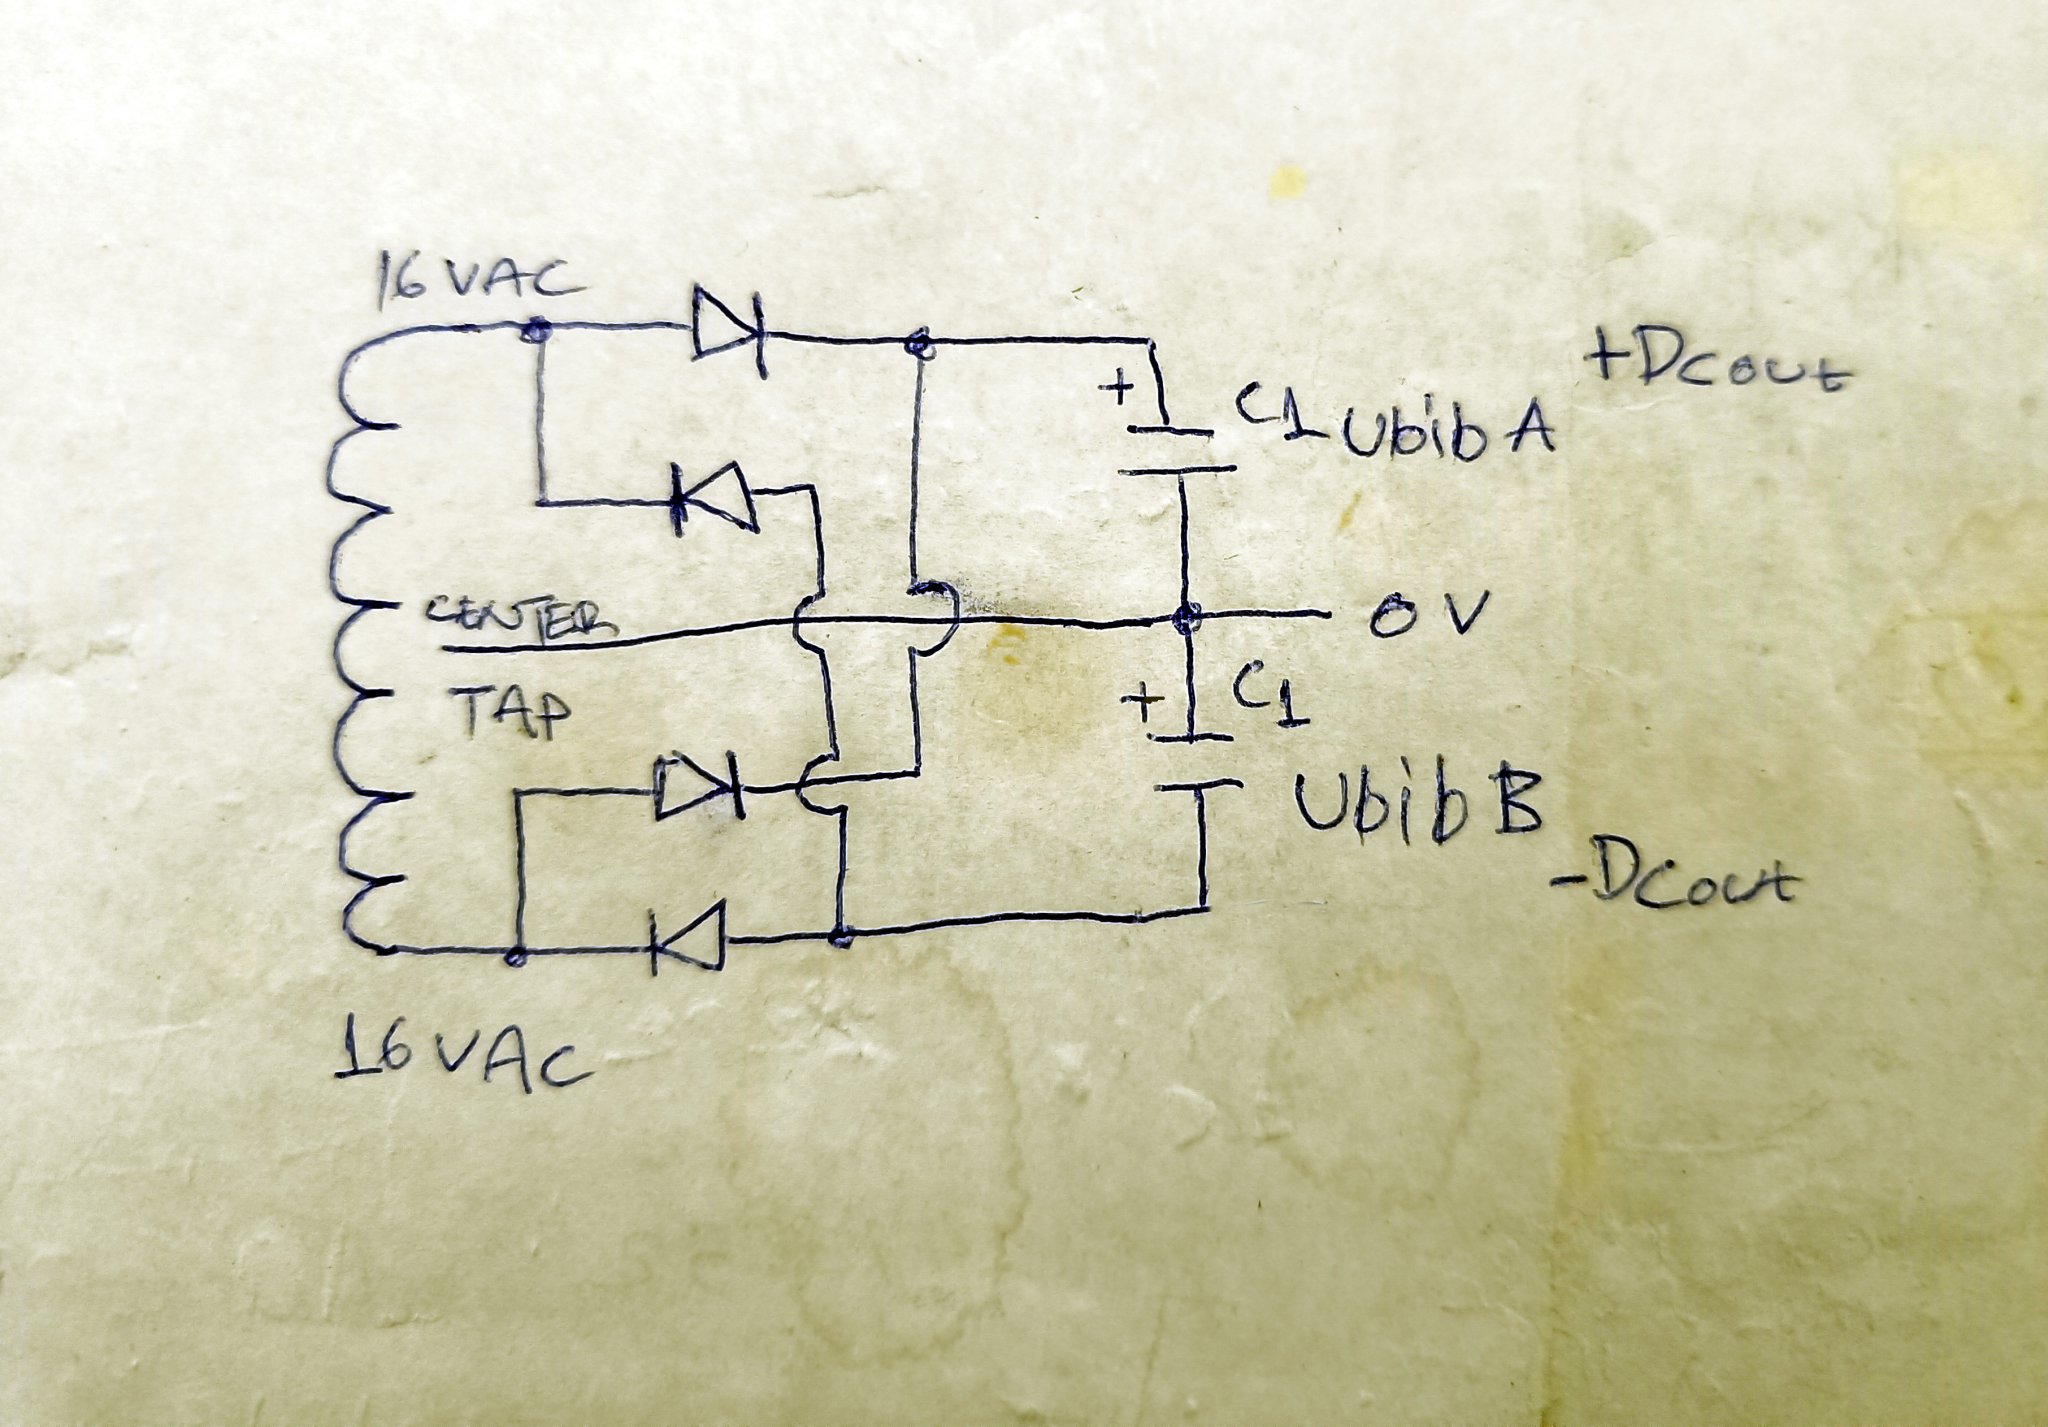 16 VAC
+DCout
+ C1 Ubib A
CENTER
0 V
TAP
+ C1
Ubib B
-DCout
16 VAC